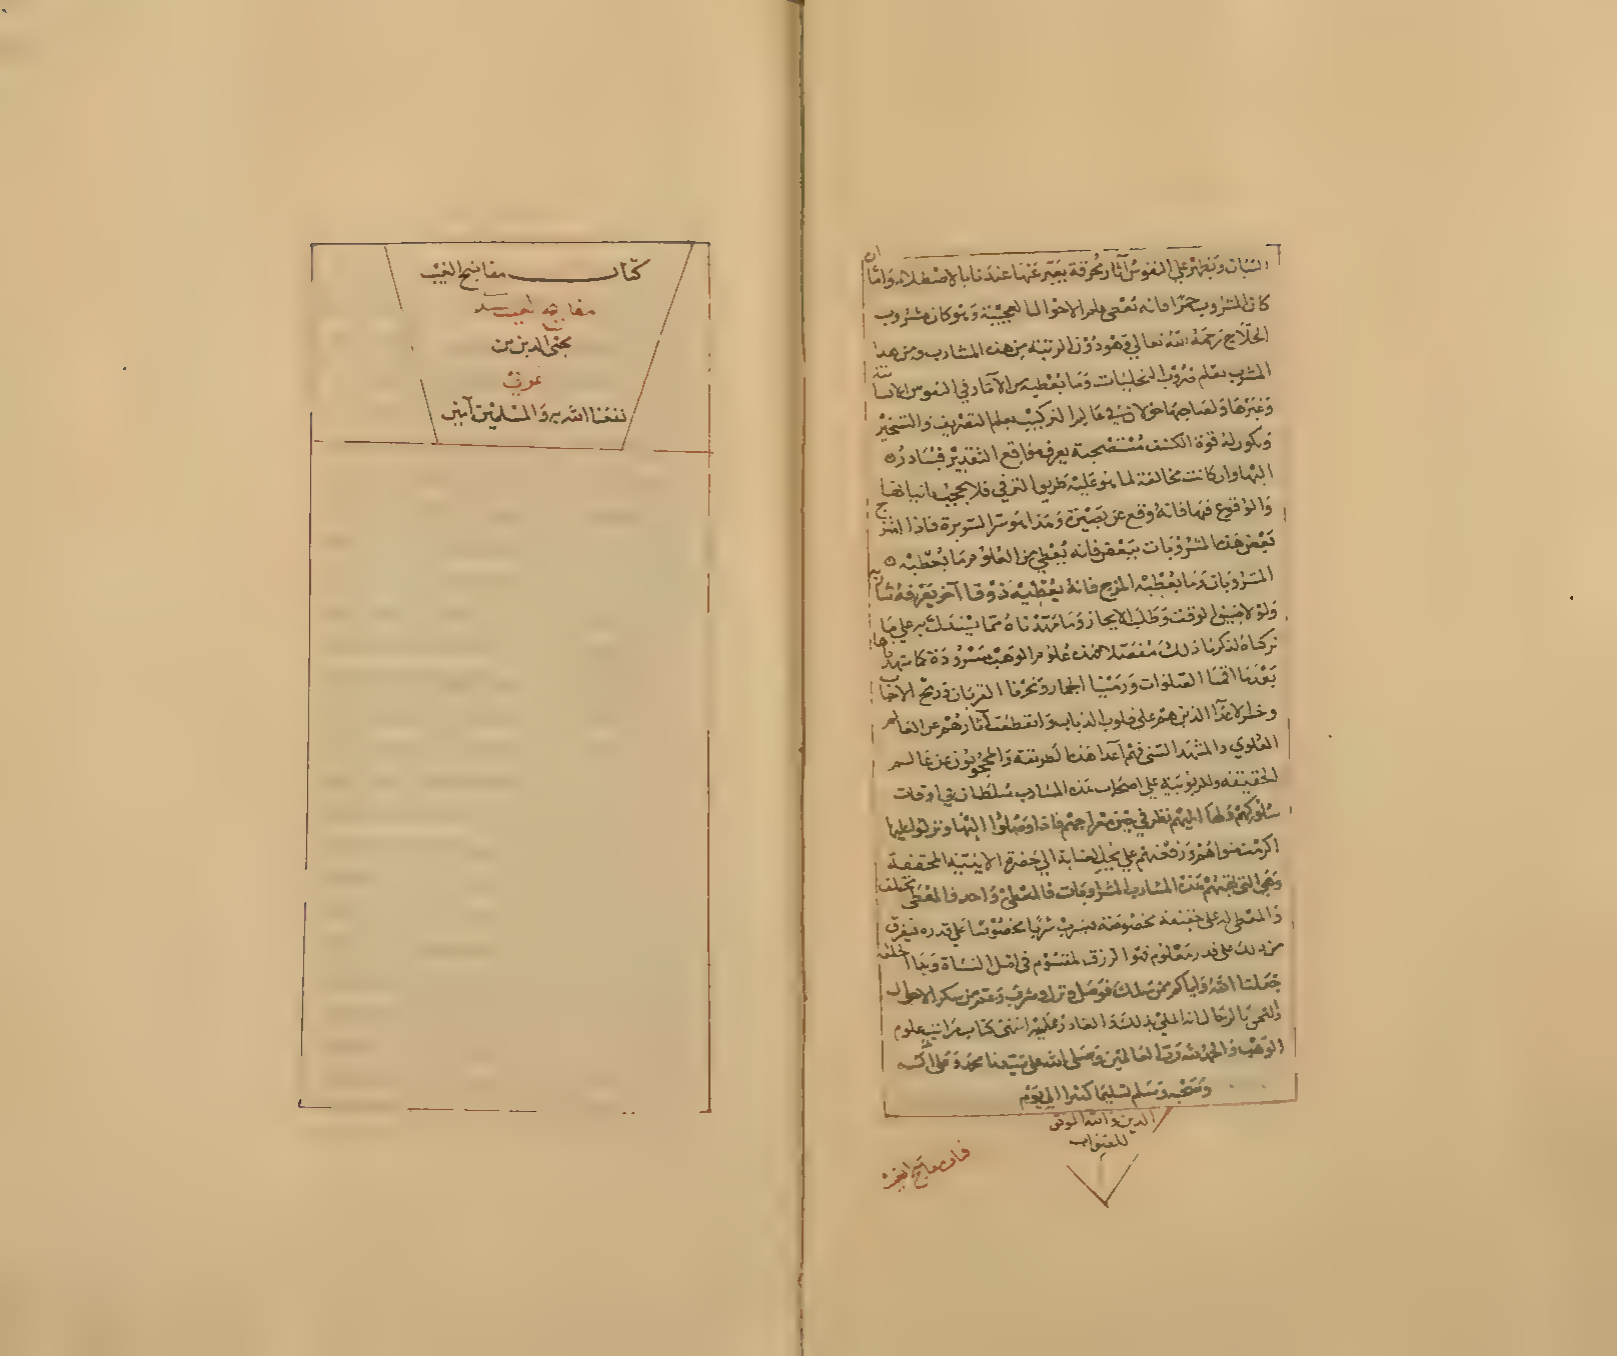 السبات وتظهر على النفوس آثار محرقة يعبر عنها عندنا بالاصطلام واما ان
كان المشروب خمرا فانه تعطى علم الاحوال العجيبة وهو كان مشروب
الحلاج رحمه الله تعالى وهو دون الرتبة من هذه المشارب ومن هذا
المشرب يعلم ضروب التجليات وما تعطيه من الآثار في النفوس الانسانية
وغيرها ولصاحبها جولان في عالم التركيب بعلم التصريف والتسخير
ويكون له قوة الكشف يعرف مواقع التقدير فيبادر
اليها وان كانت مخالفة لما هو عليه طريق الترقي فلا يحجب اتيانها
والوقوع فيها فانه وقع عن بصيرة وهذا هو سر فاذا امتزج
بعض هذه المشروبات ببعض فانه يعطي من العلوم ما يعطيه
المشروبات وما يعطيه المزج فانه يعطيه ذوقا آخر يعرفه شاربه
ولولا ضيق الوقت وطلب الايجاز وما مهدناه مما يستدل به على ما
تركناه لذكرنا ذلك مفصلا فهذه علوم الوهب مسرودة كما
بعدما اقمنا الصلوات ورمينا الجمار ونحرنا القربان
الذين هم على قلوب الذياب وانقطعت آثارهم عن العالم
العلوي والمشهد السني فهم اعدا هذه الطريقة والمحجوبون عن عالم
الحقيقة وللربوبية على اصحاب هذه المشارب سلطان في اوقات
سلوكهم ولها اليهم نظر في حين معراجهم فاذا وصلوا اليها ونزلوا عليها
اكرمت مثواهم ورفعتهم على نجب العناية الى حضرة المحققة
وهي التي تهبهم هذه المشارب المشروبات فالمعطي واحد والمعطى مختلف
والمعطى له على حقيقة مخصوصة فيشرب شربا مخصوصا على قدره فيفرق
من ذلك على قدر معلوم فهو الرزق المقسوم في اصل النشأة وبدا الخلقة
جعلنا الله واياكم ممن سلك فوصل ونزل وشرب وعصم من سكر الاحوال
بالرجال انه الملي بذلك والقادر عليه انتهى كتاب مراتب علوم
الوهب والحمد لله رب العالمين وصلى الله على سيدنا محمد وعلى آله
وصحبه وسلم تسليما كثيرا الى يوم
الدين والله الموفق
للصواب
مفاتيح الغيب
كتاب مفاتيح الغيب
محيى الدين بن
عربي
نفعنا الله به والمسلمين آمين